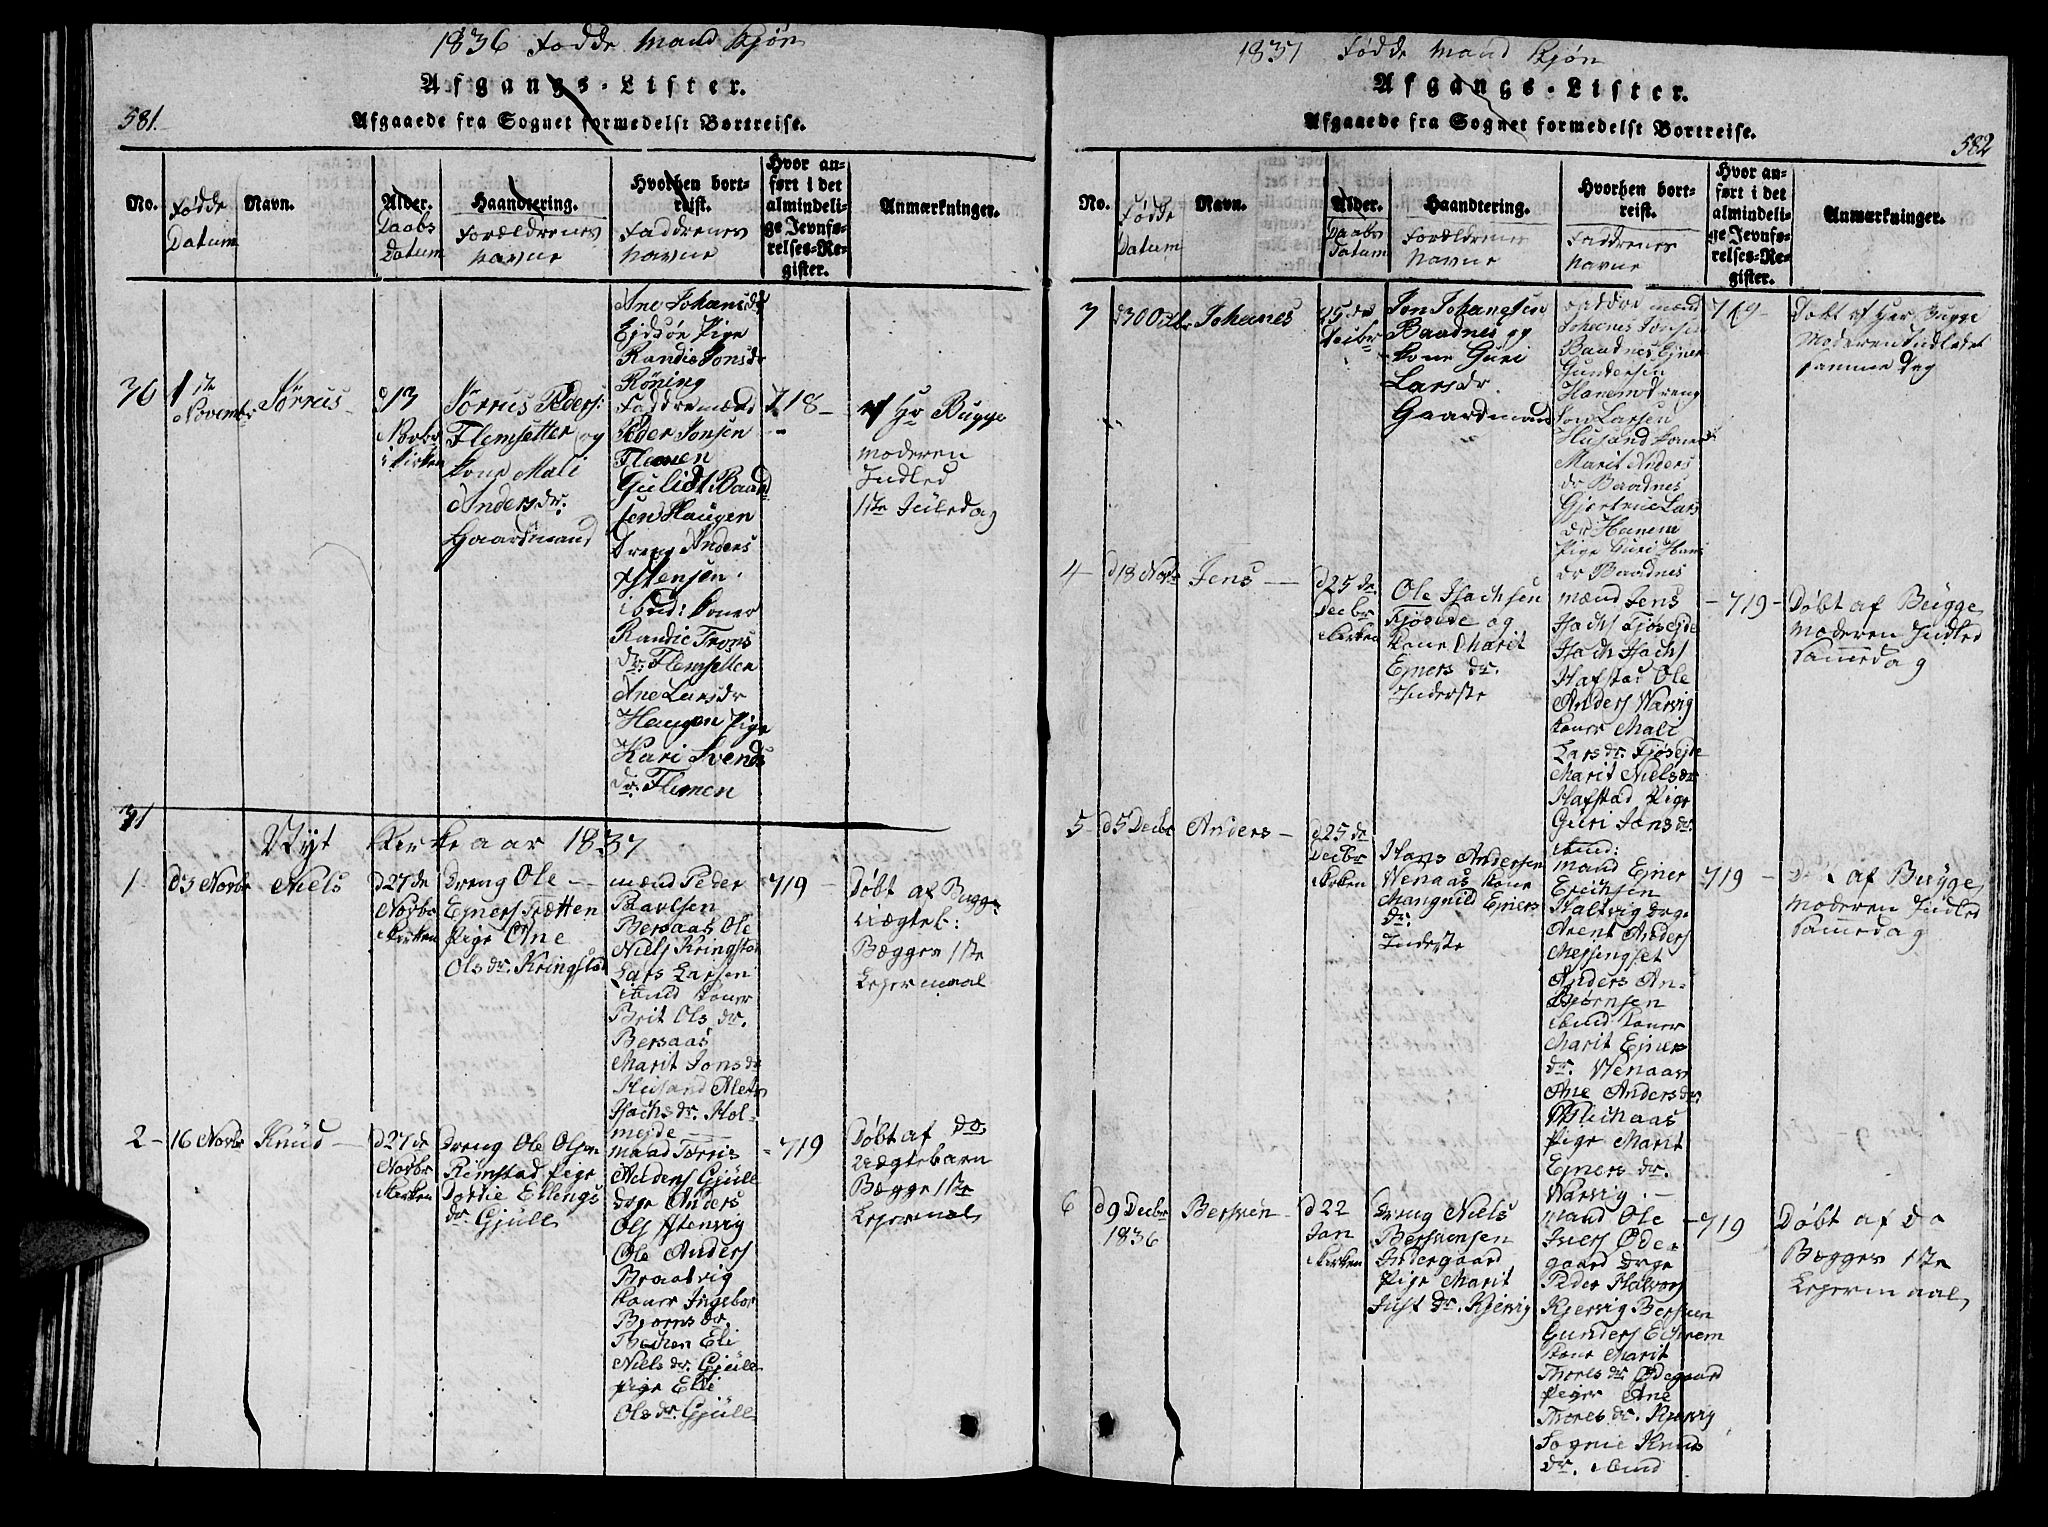 1836 Fødde Mand Kjøn
Afgangs-Lister.
581.
Afgaaede fra Sognet formedelst Bortreise.
No.
Fødde
Datum
Navn.
Alder.
Daabs
Datum
Haandtering.
Forældrenes
Navne
Hvorhen bort-
reist.
Faddrenes
Navne
Hvor an-
ført i det
almindeli-
ge Jevnfø-
relses-Re-
gister.
Anmærkninger.
Ane Johansdr
Ejdsør Pige
Randie Jonsdr
Røning
36
1ste
Novembr
Sørrus
d 13
Novbr
i Kirken
Sørrus Peders:
Flemsetter og
Kone Mali
Andersdr:
Gaardmand
Faddre mænd
Peder Jonsen
Flemen
Gulidt Baard
sen Haugen
Dreng Anders
Ystensen
ibid: koner
Randie Trons
dr: Flemsetten
Ane Larsdr
Haugen Pige
Kari Svends
dr: Flemen
718
af Hr Bugge
moderen
Indled
1ste Juledag
31
Nyt Kirkeaar 1837
1
d 3 Novbr
Niels
d 27de
Novbr
Kirken
Dreng Ole
Ejners Trætten
Pige Ane
Ols dr. Kringstad
mænd Peder
Paulsen
Bersaas Ole
Niels Kringstad
Lars Larsen
ibid koner
Brit Ols dr.
Bersaas
Marit Jons dr
Husand Alet
Isachs dr. Hol-
mejde
719
Døbt af Bugge
Uægteb:
Bægges 1ste
Lejermaal
2
16 Novbr
Knud
d 27de
Novbr
Kirken
Dreng Ole Olsen
Rimstad Pige
Dortie Ellings
dr Gjüll
maad Torris
Aldens Gjüll
Drge Anders
Ols Stenvig
Ole Anders
Braatvig
koner Ingebor
Bjorns dr.
Thechen Eli
Niels dr. Gjüll
Pige Eli
Ols dr. Gjüll
719
Døbt af do
Uægtebarn
Bægge 1ste
Lejermaal
1837 Fødde Mand Kjøn
Afgangs-Lister.
Afgaaede fra Sognet formedelst Bortreise.
582
No.
Fødde
Datum
Navn.
Alder.
Daabs
Datum
Haandtering.
Forældrenes
Navne
Hvorhen bort-
reist.
Faddrenes
Navne
Hvor an-
ført i det
almindeli-
ge Jevnfø-
relses-Re-
gister.
Anmærkninger.
3
d 30 Octbr
Johanes
25de
Decbr
Jon Johansen
Baadnes og
Kone Guri
Larsdr.
Gaardmand
mænd
Johanes Jonsen
Baadnes Ejner
Gundersen
Hanem Dreng
Jon Larsen
Husand koner
Marit Anders
dr Baadnes
Gjertrue Lars
dr Hanem
Pige Guri Hans
dr Baadnes
719
Døbt af Her Bugge
Moderen Indledet
samme Dag
4
d 18 Novbr
Jens
d 25 de
Decbr
Kirken
Ole Isachsen
Fjøseide og
Kone Marit
Ejners dr.
Inderste
mænd Jens
Isachs Fjøsejde
Isach Isachs
Hafstad Ole
Anders Warvig
koner Mali
Lars dr. Fjøsejde
Marit Niels dr
Hafstad Pige
Guri Jons dr.
ibid:
719
Døbt af Bugge
moderen Indled
Samedag
5
d 5 Decbr
Anders
d 25 de
Decbr
Kirken
Hans Andersen
Wenaas Kone
Mangnild Ejners
dr.
Inderste
mand Ejner
Erichsen
Halsvig Drge
Arent Anders
Messingset
Anders An-
Bjørnsen
ibid koner
Marit Ejners
dr. Wenaas
Ane Anders dr.
Pige Marit
Ejners dr.
Warvig.
719
af Bugge
Moderen Indled
Samedag
6
d 9 Decbr
1836
Bersven
d 22
Jan
Kirken
Dreng Niels
Bersvensen
Indergaard
Pige Marit
Just dr. Kjervig
mand Ole
Ivers Øde-
gaard Drge
Peder Halvors
Kjervig Bersven
Gunders Echrem
kone Marit
Thores dr Ødegaard
Piger Ane
Thores dr. Kjervig
Fognie Knuds
dr. ibid
719
Døbt af do
Bægges 1ste
Lejermaal